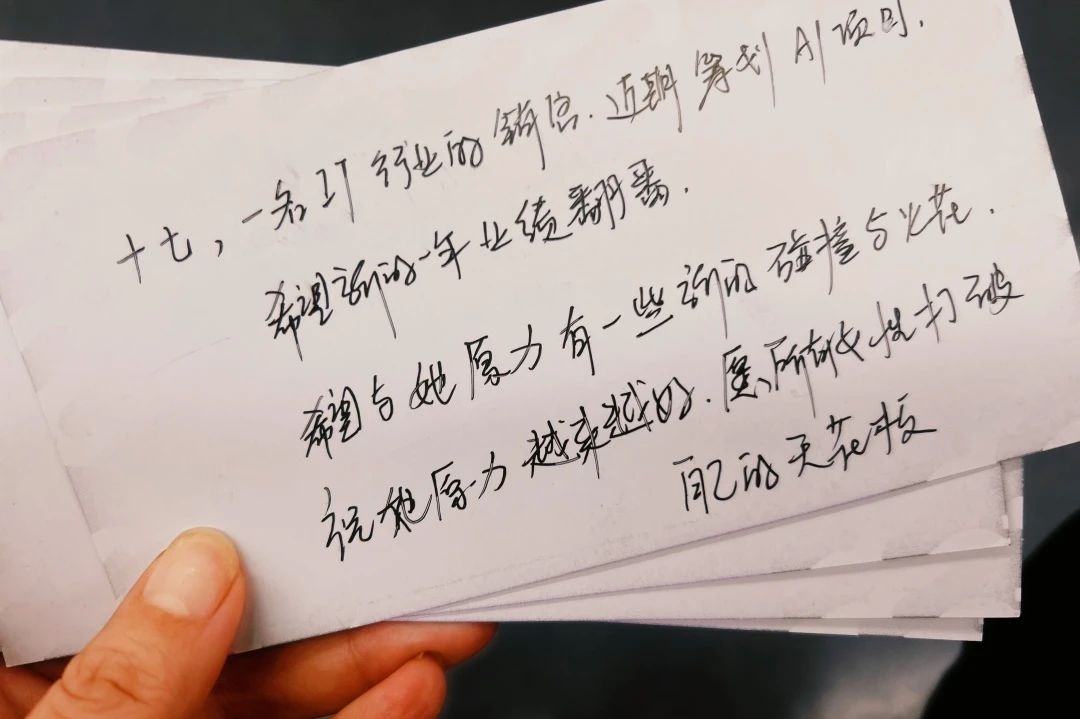 十七，一名IT行业的销售.近期筹划AI项目.
希望新的一年业绩翻番.
希望与她原力有一些新的碰撞与火花.
祝她原力越来越好.愿所有女性打破
自己的天花板